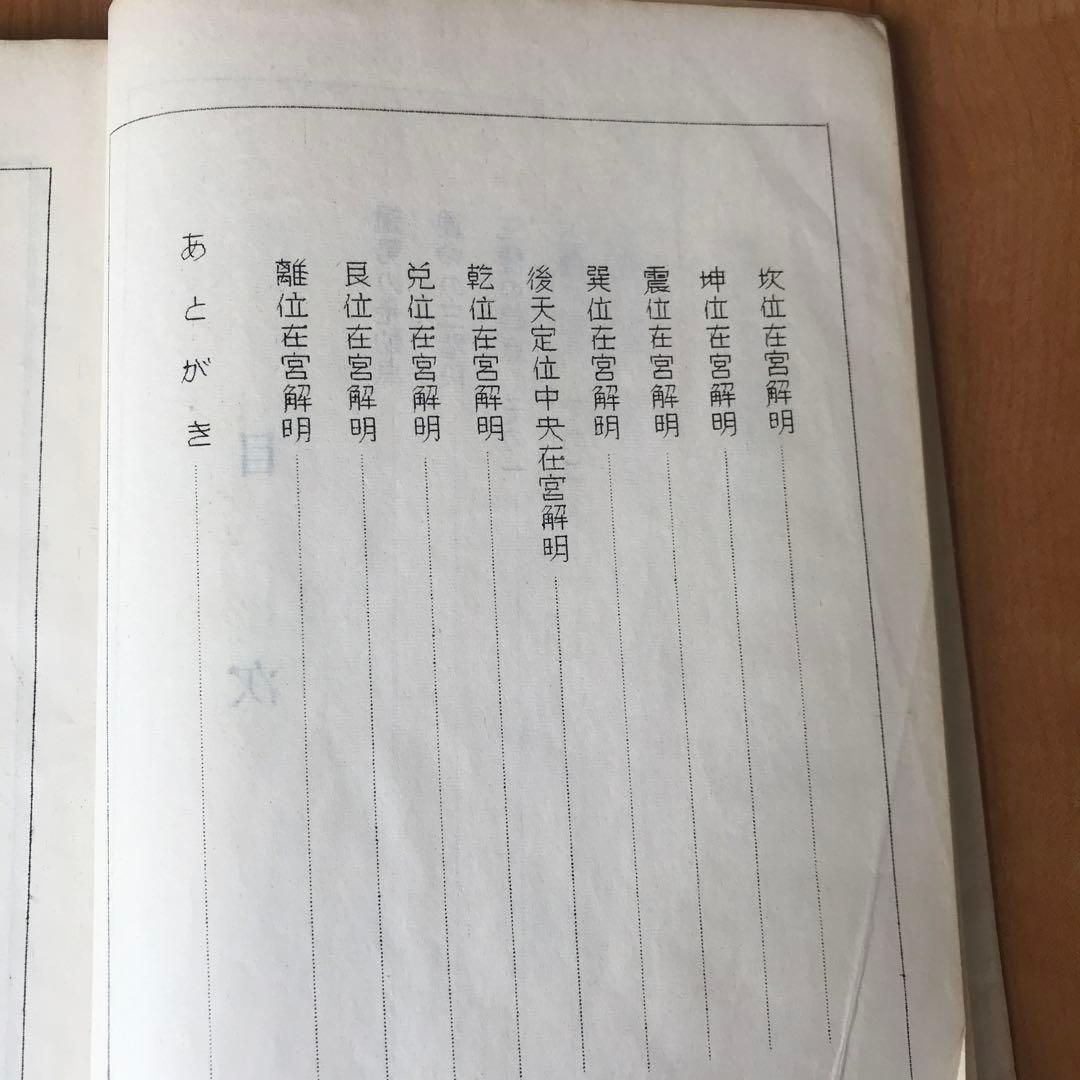 坎位在宮解明
坤位在宮解明
震位在宮解明
巽位在宮解明
後天定位中央在宮解明
乾位在宮解明
兌位在宮解明
艮位在宮解明
離位在宮解明
あとがき
目次